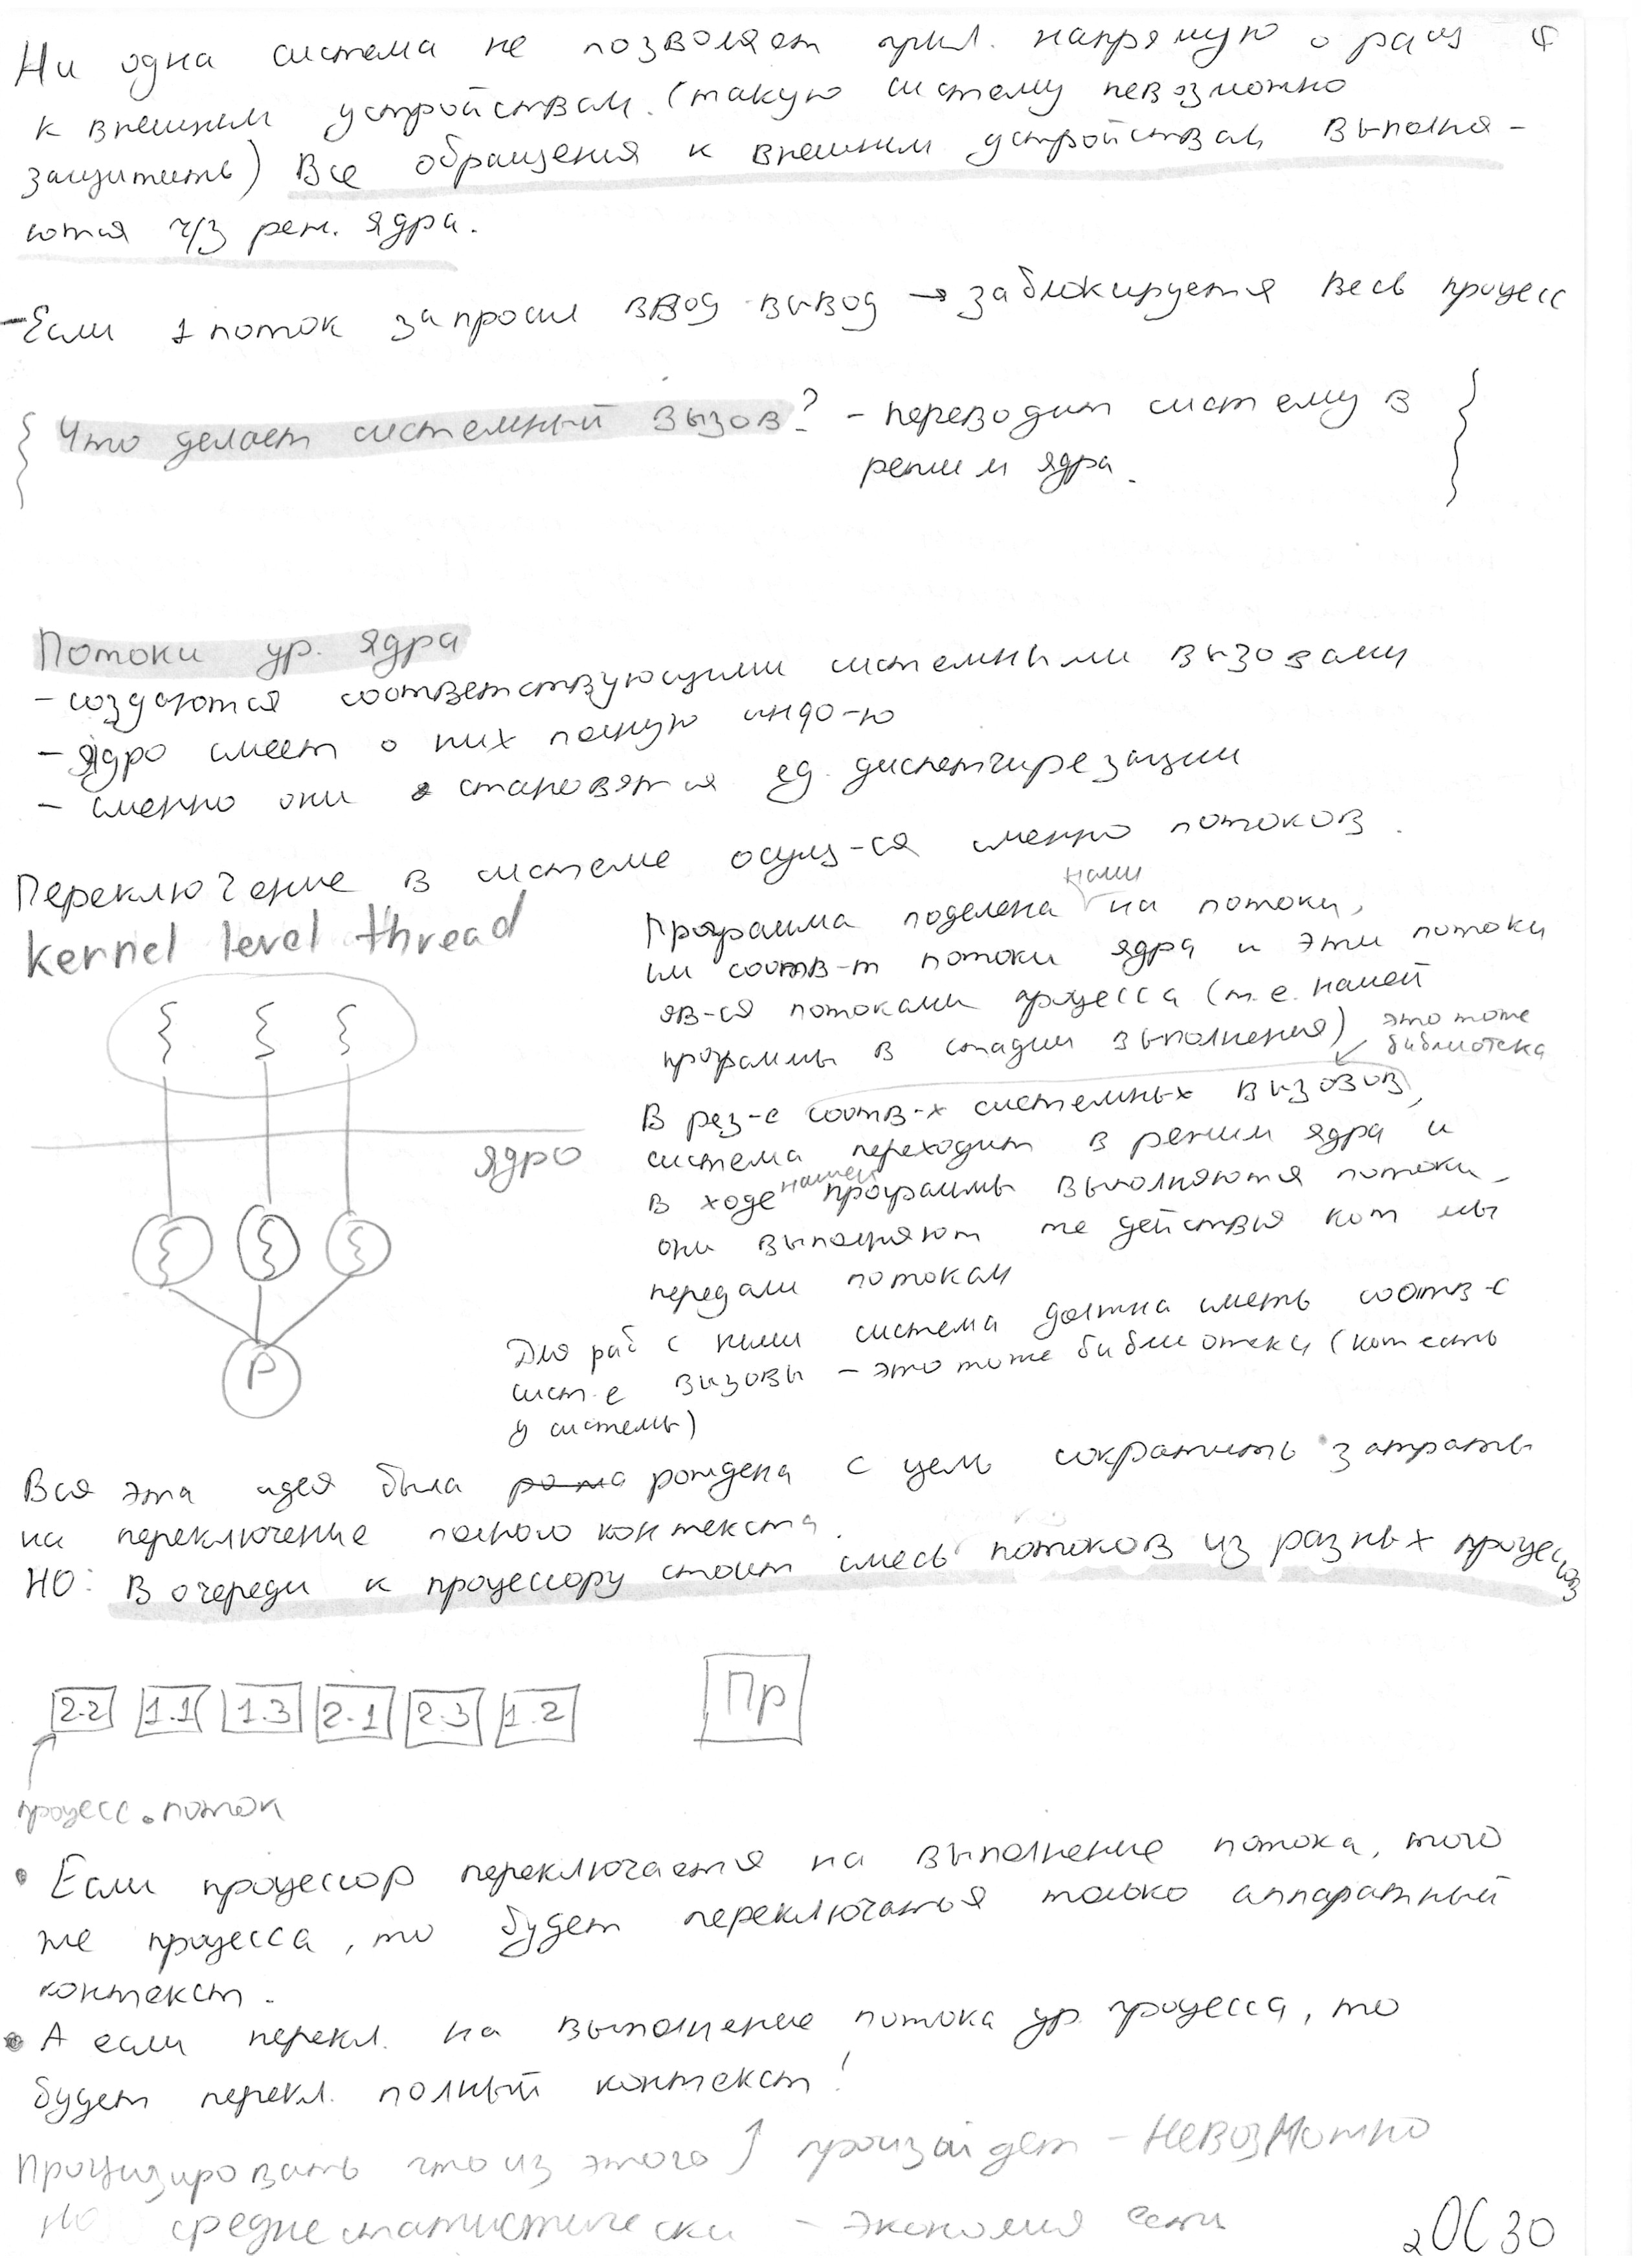 Ни одна система не позволяет прил. напрямую
к внешним устройствам. (такую систему невозможно
защитить) Все обращения к внешним устройствам выполня-
ются ч/з реж. ядра.
- Если 1 поток запросил ввод-вывод → заблокируется весь процесс
{ Что делает системный вызов? - переводит систему в }
режим ядра.
Потоки ур. ядра
- создаются соответствующими системными вызовами
- Ядро имеет о них полную инфо-ю
- именно они становятся ед. диспетчиризации
Переключение в системе осущ-ся именно потоков.
kernel level thread
Программа поделена нами на потоки,
им соотв-т потоки ядра и эти потоки
яв-ся потоками процесса (т.е. нашей
программы в стадии выполнения)
это тоже
библиотека
В рез-е соотв-х системных вызовов,
система переходит в режим ядра и
в ходе нашей программы выполняются потоки,
они выполняют те действия кот мы
передали потокам
ядро
P
Для раб с ними система должна иметь соотв-е
сист-е вызовы - это тоже библиотеки (кот есть
у системы)
Вся эта идея была рождена с цель сократить затраты
на переключение полного контекста.
НО: В очереди к процессору стоит смесь потоков из разных процессов
2.2 1.1 1.3 2.1 2.3 1.2 Пр
процесс.поток
• Если процессор переключается на выполнение потока, того
же процесса, то будет переключаться только аппаратный
контекст.
• А если перекл. на выполнение потока др. процесса, то
будет перекл. полный контекст!
что из этого ↑ произойдет - невозможно
Но среднестатистически - экономия есть
2ОС30